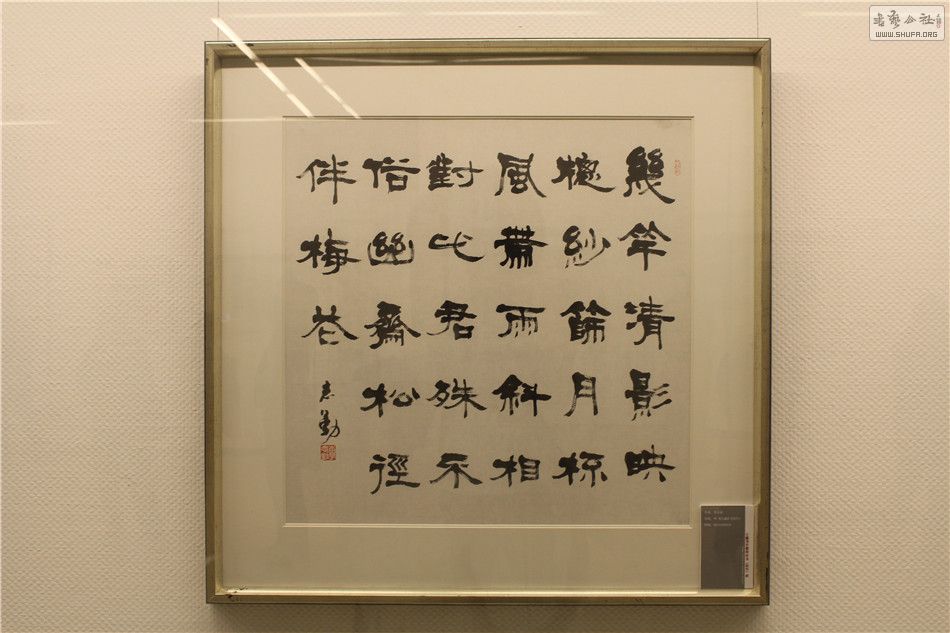 幾竿清影映
牕紗篩月梳
風帶雨斜相
對此君殊不
俗幽齋松徑
伴梅花
志勤
書藝公社
WWW.SHUFA.ORG